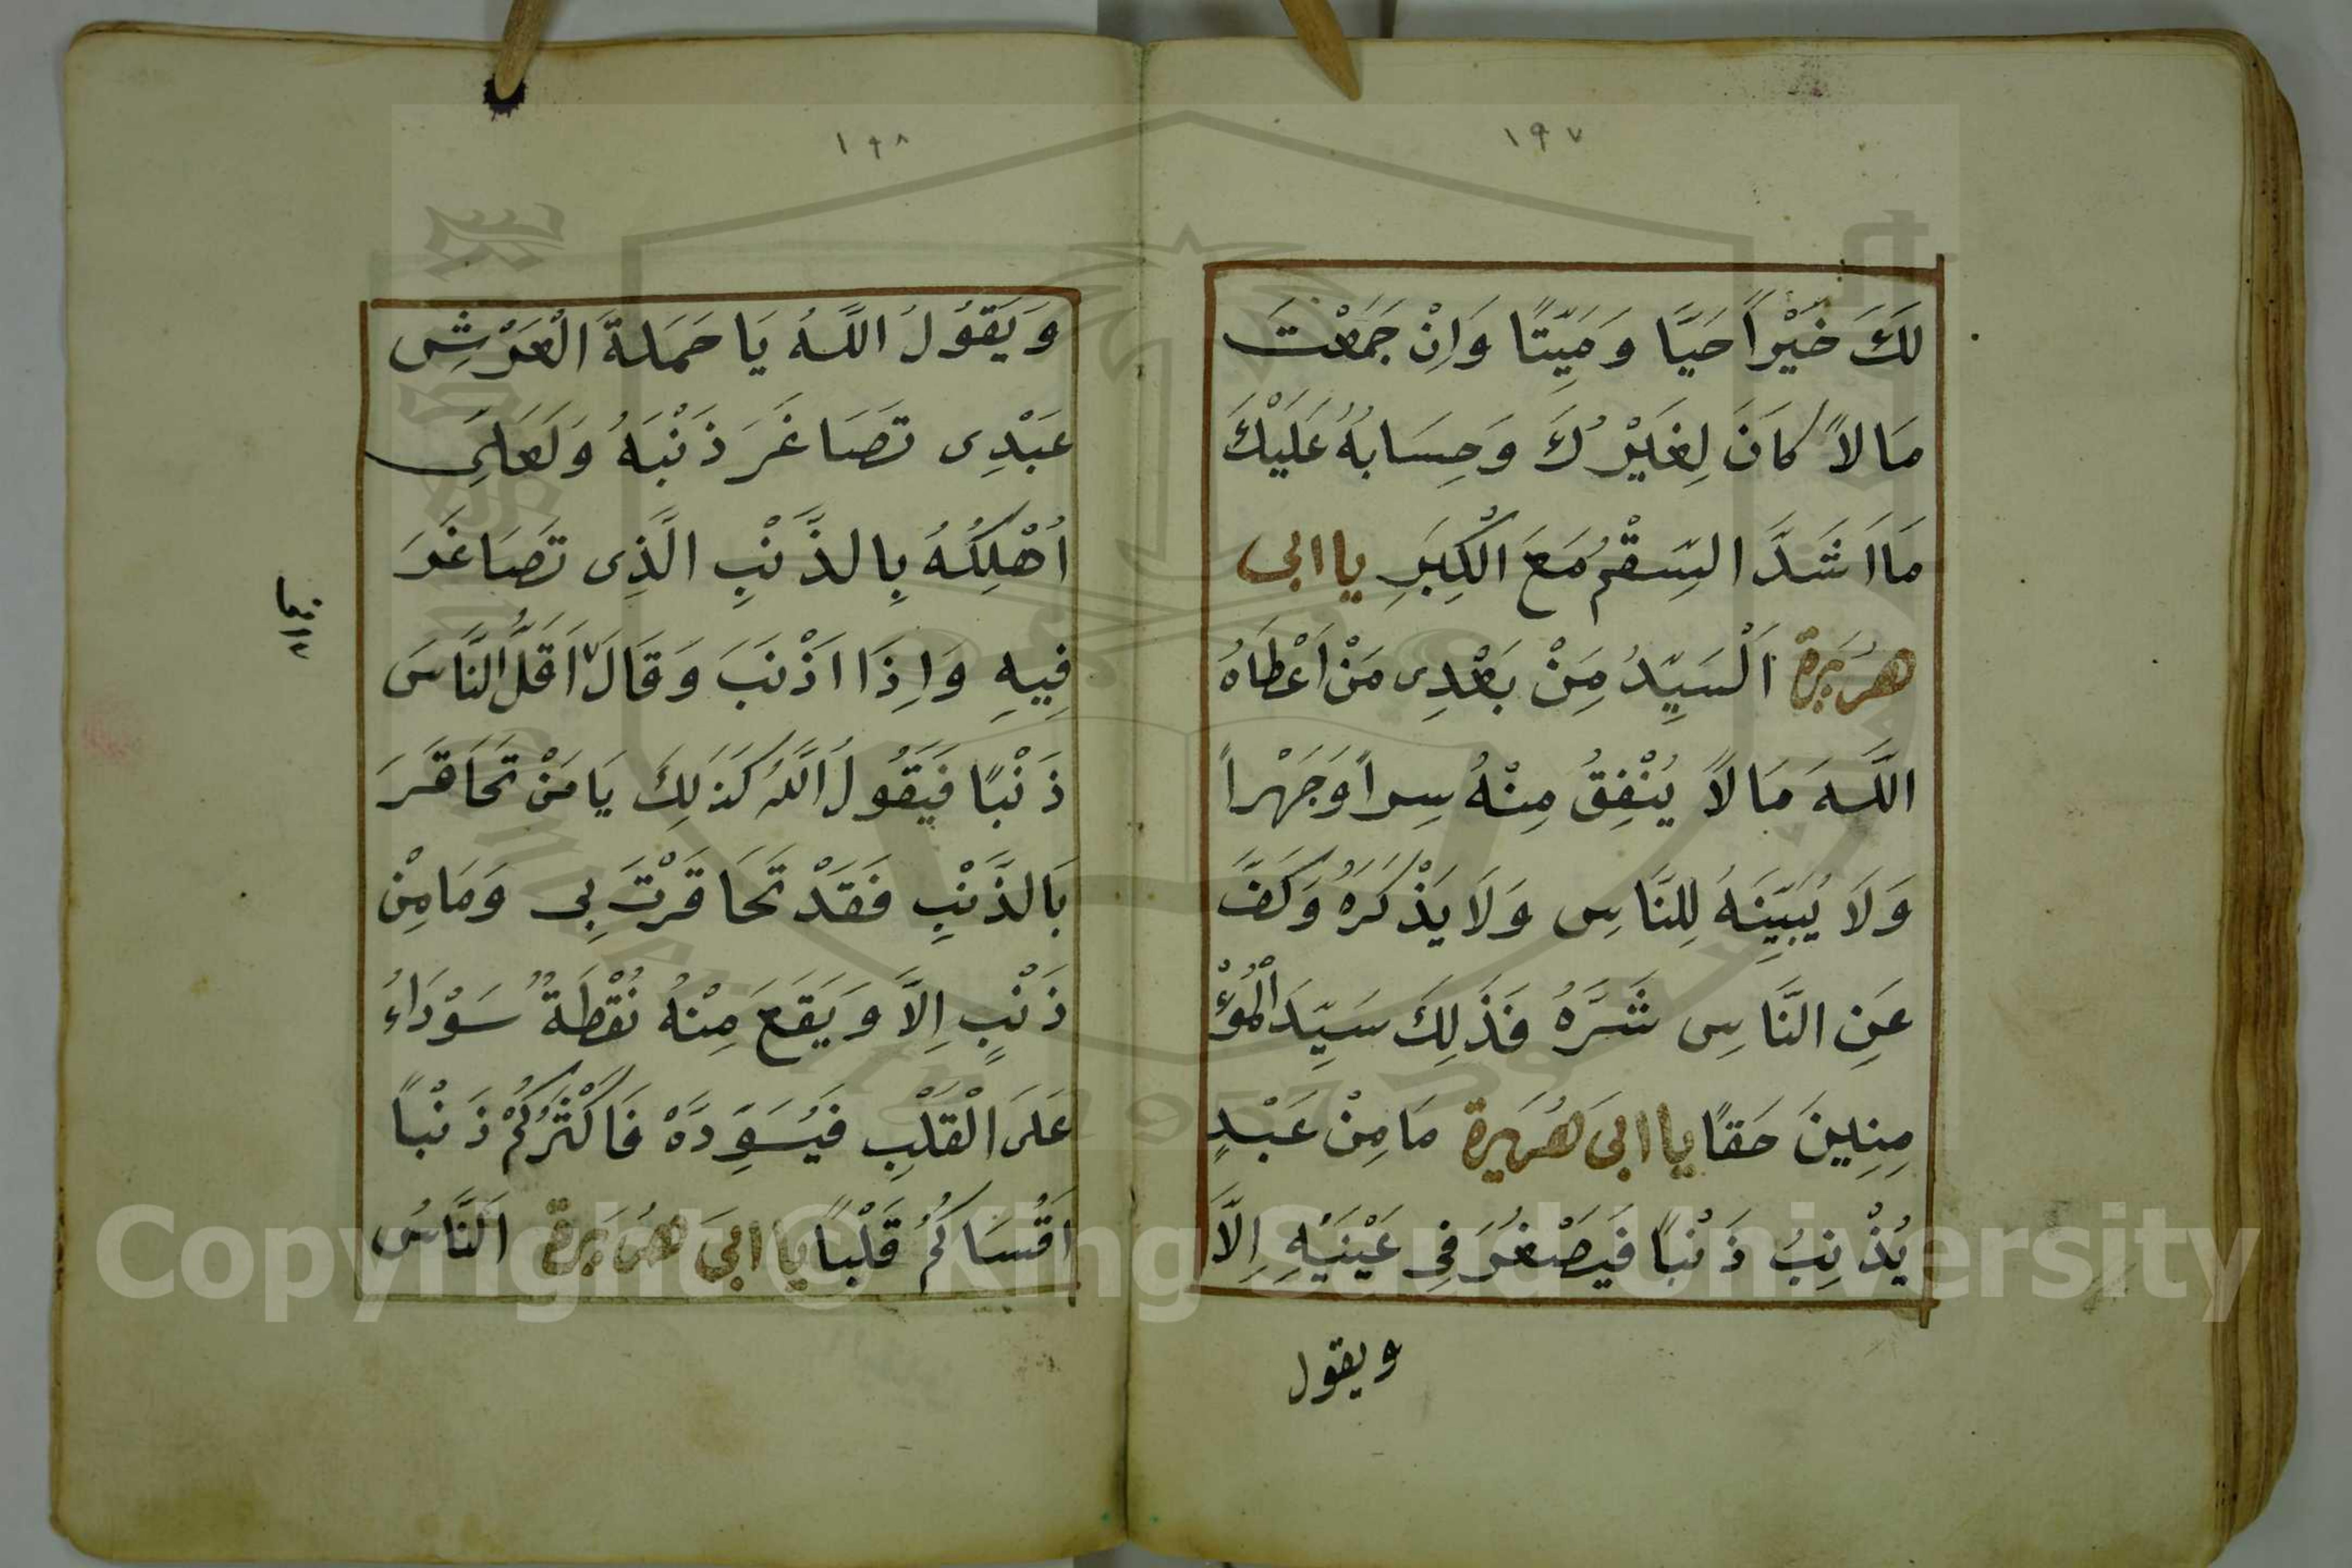 ١٩٧
لَكَ خَيْراً حَيًّا وَمَيِّتًا وَاِنْ جَمَعْتَ
مَالاً كَانَ لِغَيْرِكَ وَحِسَابهُ عَلَيْكَ
مَا اَشَدَّ السِّقْمُ مَعَ الْكِبَرِ يا ابى
هُرَيرة اَلْسَيِّدُ مِنْ بَعْدِى مَنْ اَعْطَاهُ
اللَّهَ مَالاً يُنْفِقُ مِنْهُ سِراً وَجَهْراً
وَلَا يُبَيِّنَهُ لِلنَّاسِ وَلَا يَذْكُرَهُ وَكَفَّ
عَنِ النَّاسِ شَرَّهُ فَذَلِكَ سَيِّدَ الْمُؤْ
مِنِينَ حَقًا يا ابىَ هُرَيرة مَا مِنْ عَبْدٍ
يُذْنِبُ ذَنْباً فَيَصْغُرَ فِى عَيْنَيْهِ اِلَّا
ويقول
١٩٨
وَيَقُولُ اللَّهُ يَا حَمَلةَ الْعَرْشِ
عَبْدِى تَصَاغَرَ ذَنْبَهُ وَلَعَلِىَ
اُهْلِكُهُ بِالذَّنْبِ الَّذِى تَصَاغَرَ
فِيهِ وَاِذَا اَذْنَبَ وَقَالَ اَقَلُّ النَّاسَ
ذَنْبًا فَيَقُولُ اللَّهُ كَذَلِكَ يَا مَنْ تَحَاقَرَ
بَالذَّنْبِ فَقَدْ تَحَاقَرْتَ بِى وَمَا مِنْ
ذَنْبٍ اِلاَّ وَيَقَعَ مِنْهُ نُقْطَةٌ سَوْدَاءُ
عَلَى الْقَلْبِ فَيُسَوِّدَهْ فَاَكْثَرُكُمْ ذَنْباً
اَقْسَاكُمْ قَلْبًا يا ابىَ هُرَيرة اَلنَّاسُ
Copyright © King Saud University